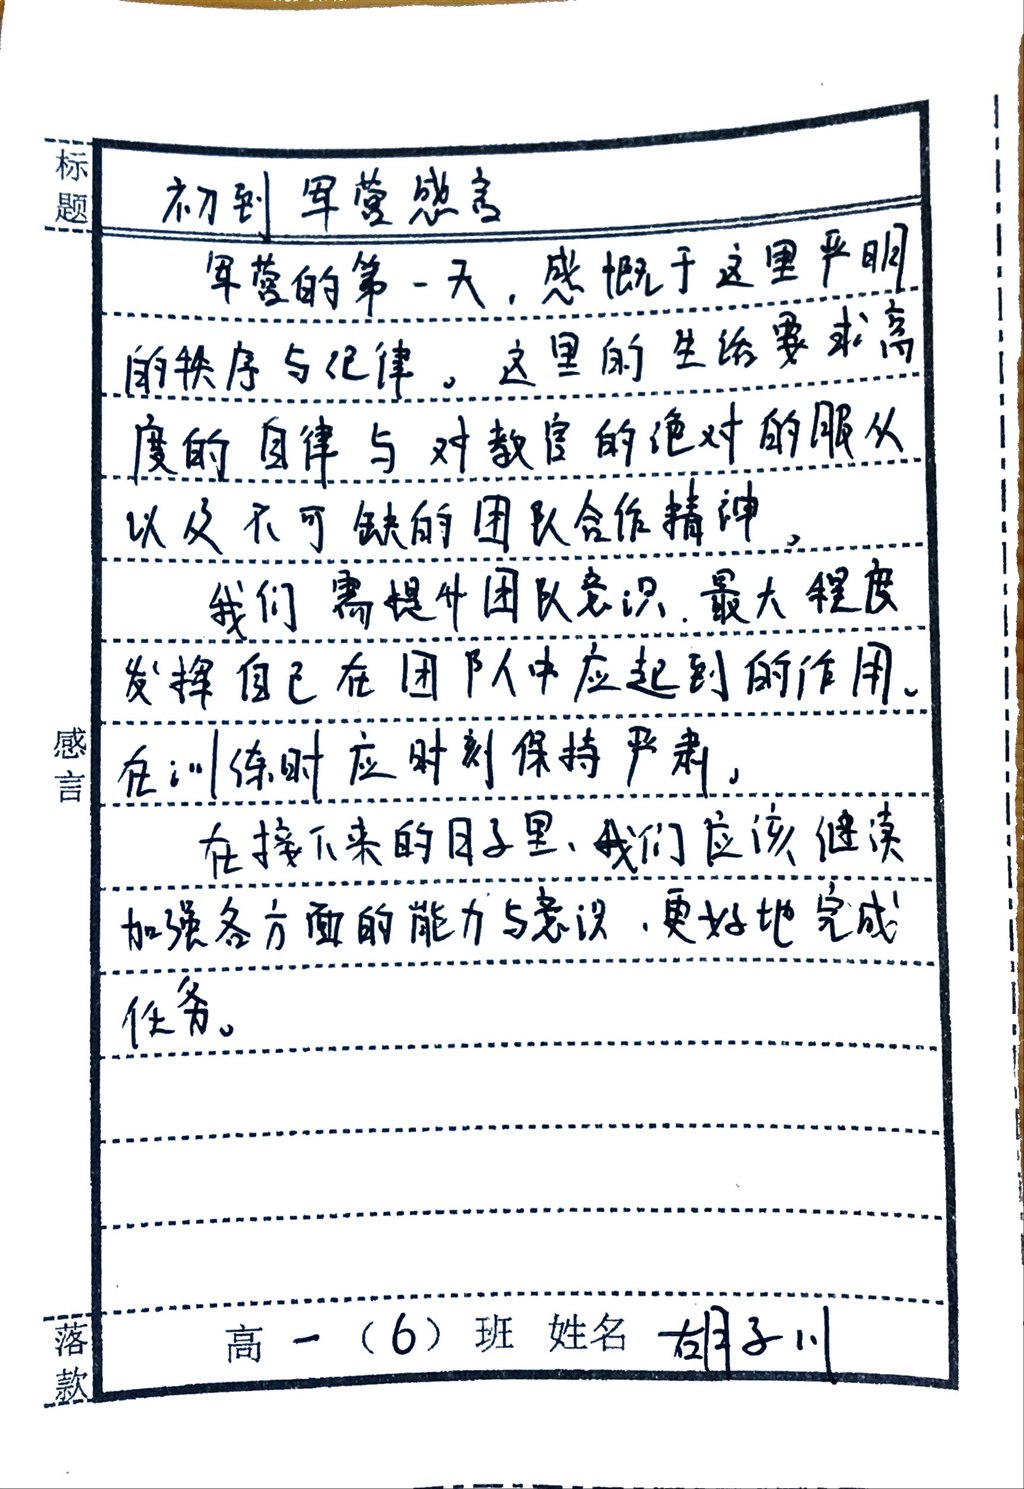 标题
初到军营感言
军营的第一天，感慨于这里严明
的秩序与纪律。这里的生活要求高
度的自律与对教官的绝对的服从
以及不可缺的团队合作精神。
我们需提升团队意识，最大程度
发挥自己在团队中应起到的作用。
在训练时应时刻保持严肃。
感言
在接下来的日子里，我们应该继续
加强各方面的能力与意识，更好地完成
任务。
落款
高一（6）班 姓名 胡子川